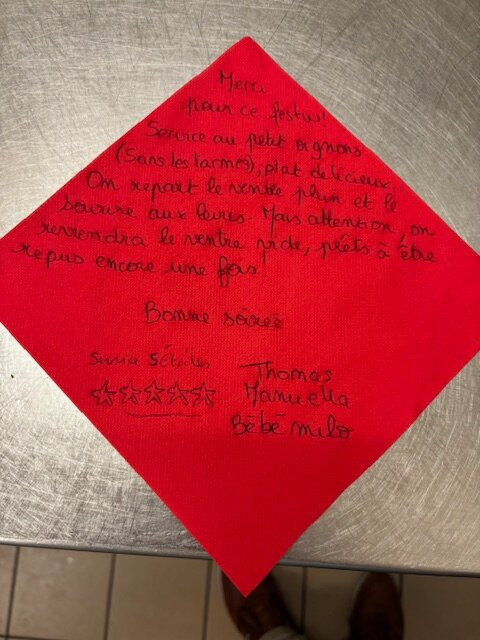 Merci
pour ce festin!
Service au petit oignons
(Sans les larmes), plat delicieux.
On repart le ventre plein et le
sourire aux lèvres. Mais attention, on
reviendra le ventre vide, prêts à être
repus encore une fois!
Bonne soirée
Service 5 étoiles
Thomas
Manuella
Bébé milo